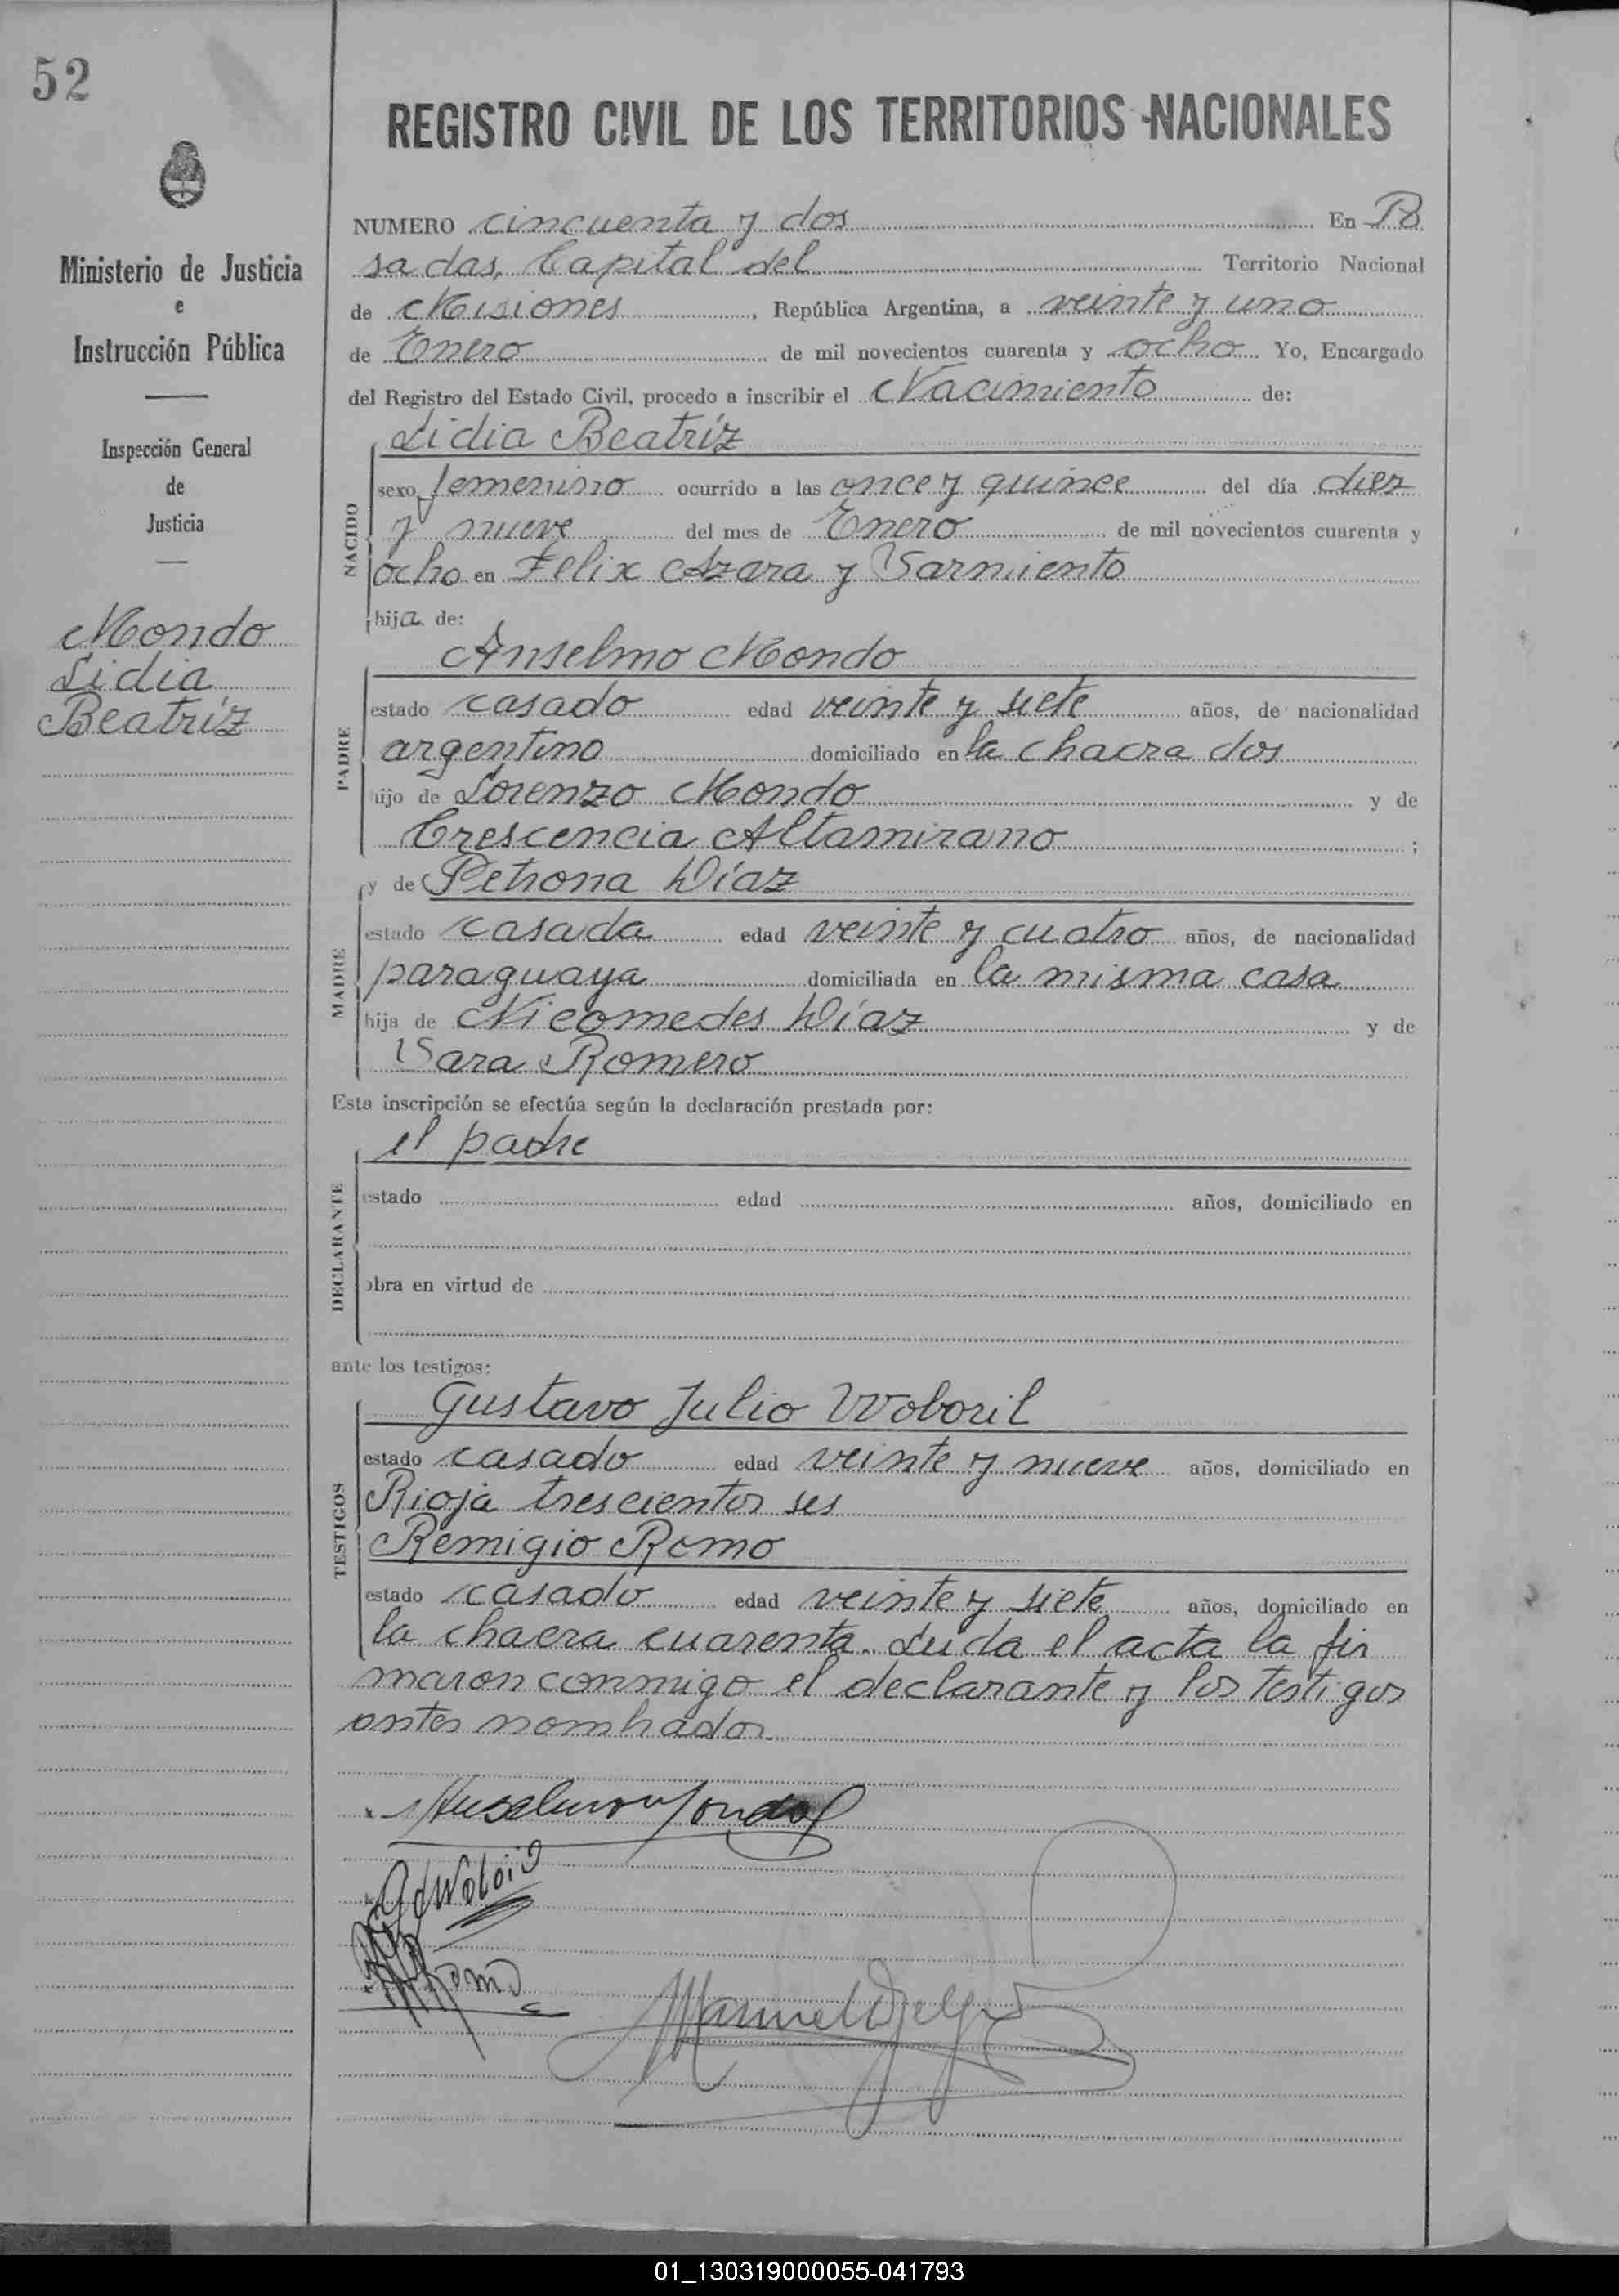 52
REGISTRO CIVIL DE LOS TERRITORIOS NACIONALES
Ministerio de Justicia
e
Instrucción Pública
Inspección General
de
Justicia
Mondo
Lidia
Beatríz
NUMERO cincuenta y dos En Po
sadas, Capital del Territorio Nacional
de Misiones, República Argentina, a veinte y uno
de Enero de mil novecientos cuarenta y ocho Yo, Encargado
del Registro del Estado Civil, procedo a inscribir el Nacimiento de:
Lidia Beatríz
NACIDO
sexo femenino ocurrido a las once y quince del día diez
y nueve del mes de Enero de mil novecientos cuarenta y
ocho en Felix Azara y Sarmiento
hija de:
Anselmo Mondo
PADRE
estado casado edad veinte y siete años, de nacionalidad
argentino domiciliado en la chacra dos
hijo de Lorenzo Mondo y de
Crescencia Altamirano ;
y de Petrona Díaz
MADRE
estado casada edad veinte y cuatro años, de nacionalidad
paraguaya domiciliada en la misma casa
hija de Nicomedes Díaz y de
Sara Romero
Esta inscripción se efectúa según la declaración prestada por:
el padre
DECLARANTE
estado edad años, domiciliado en
obra en virtud de
ante los testigos:
Gustavo Julio Woboril
TESTIGOS
estado casado edad veinte y nueve años, domiciliado en
Rioja trescientos seis
Remigio Romo
estado casado edad veinte y siete años, domiciliado en
la chacra cuarenta. Leida el acta la fir
maron conmigo el declarante y los testigos
antes nombrados.
Anselmo Mondo
Romo
01_130319000055-041793